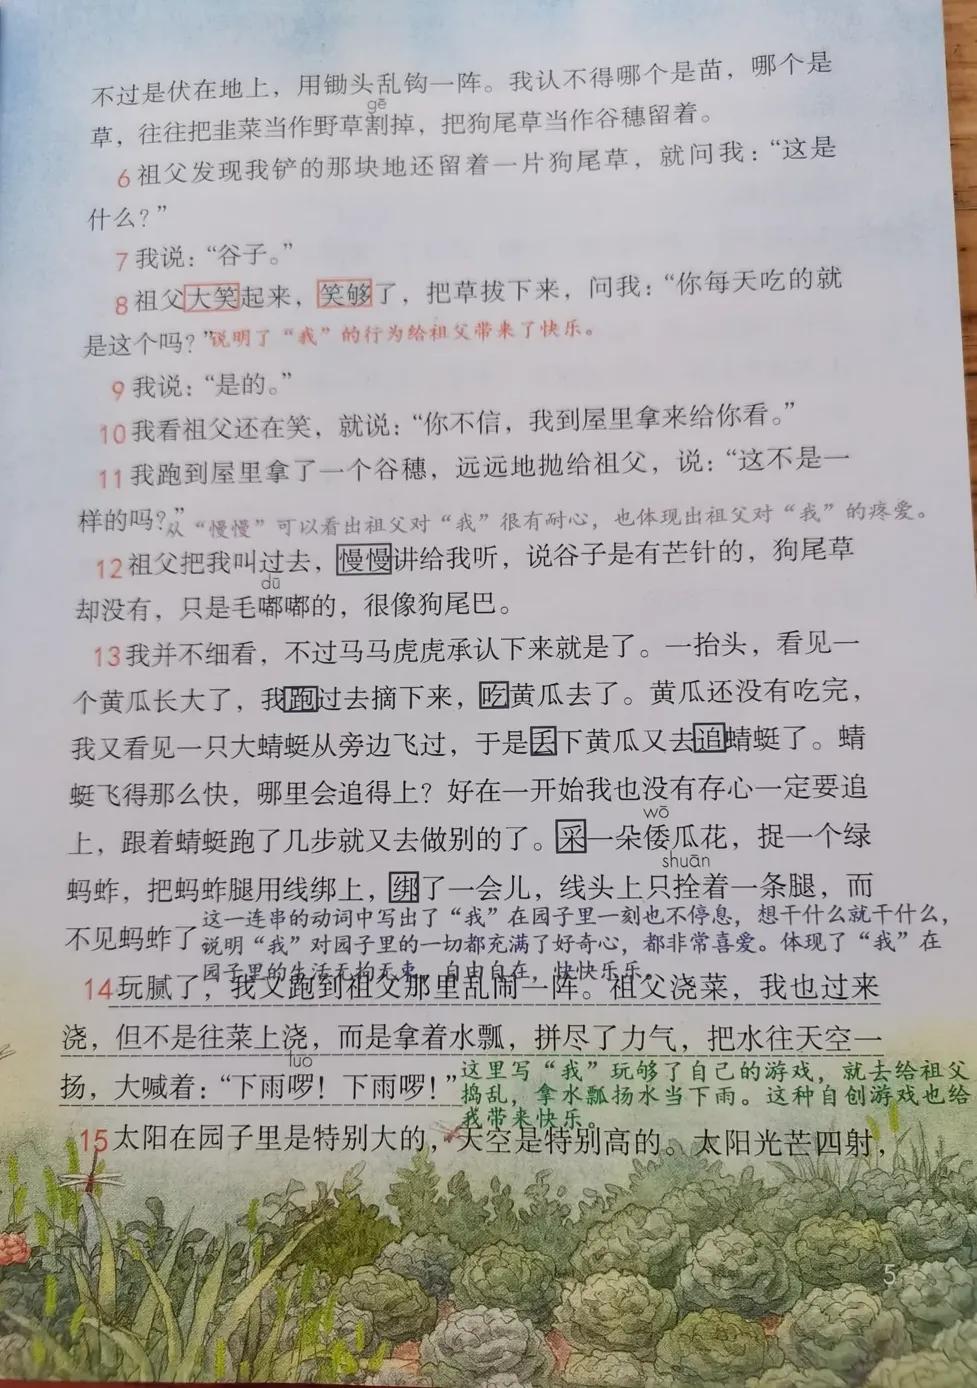 不过是伏在地上，用锄头乱钩一阵。我认不得哪个是苗，哪个是
gē
草，往往把韭菜当作野草割掉，把狗尾草当作谷穗留着。
6 祖父发现我铲的那块地还留着一片狗尾草，就问我：“这是
什么？”
7 我说：“谷子。”
8 祖父大笑起来，笑够了，把草拔下来，问我：“你每天吃的就
是这个吗？”说明了“我”的行为给祖父带来了快乐。
9 我说：“是的。”
10 我看祖父还在笑，就说：“你不信，我到屋里拿来给你看。”
11 我跑到屋里拿了一个谷穗，远远地抛给祖父，说：“这不是一
样的吗？”
从“慢慢”可以看出祖父对“我”很有耐心，也体现出祖父对“我”的疼爱。
12 祖父把我叫过去，慢慢讲给我听，说谷子是有芒针的，狗尾草
dū
却没有，只是毛嘟嘟的，很像狗尾巴。
13 我并不细看，不过马马虎虎承认下来就是了。一抬头，看见一
个黄瓜长大了，我跑过去摘下来，吃黄瓜去了。黄瓜还没有吃完，
我又看见一只大蜻蜓从旁边飞过，于是丢下黄瓜又去追蜻蜓了。蜻
蜓飞得那么快，哪里会追得上？好在一开始我也没有存心一定要追
wō
上，跟着蜻蜓跑了几步就又去做别的了。采一朵倭瓜花，捉一个绿
shuān
蚂蚱，把蚂蚱腿用线绑上，绑了一会儿，线头上只拴着一条腿，而
不见蚂蚱了
这一连串的动词中写出了“我”在园子里一刻也不停息，想干什么就干什么，
说明“我”对园子里的一切都充满了好奇心，都非常喜爱。体现了“我”在
园子里的生活无拘无束，自由自在，快快乐乐。
14 玩腻了，我又跑到祖父那里乱闹一阵。祖父浇菜，我也过来
浇，但不是往菜上浇，而是拿着水瓢，拼尽了力气，把水往天空一
luo
扬，大喊着：“下雨啰！下雨啰！”
这里写“我”玩够了自己的游戏，就去给祖父
捣乱，拿水瓢扬水当下雨。这种自创游戏也给
我带来快乐。
15 太阳在园子里是特别大的，天空是特别高的。太阳光芒四射，
5